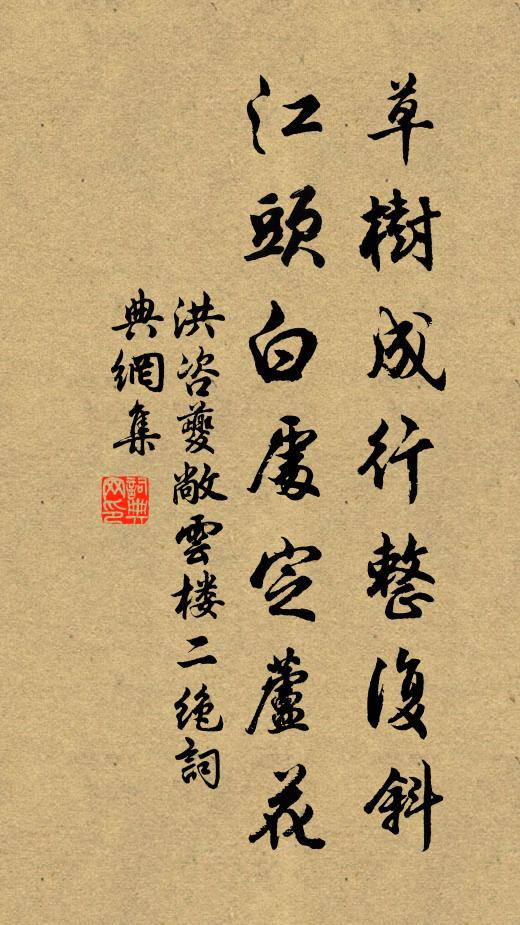 草樹成行整復斜
江頭白處定蘆花
洪咨夔敞雲樓二絶詞
典網集
詞典網印